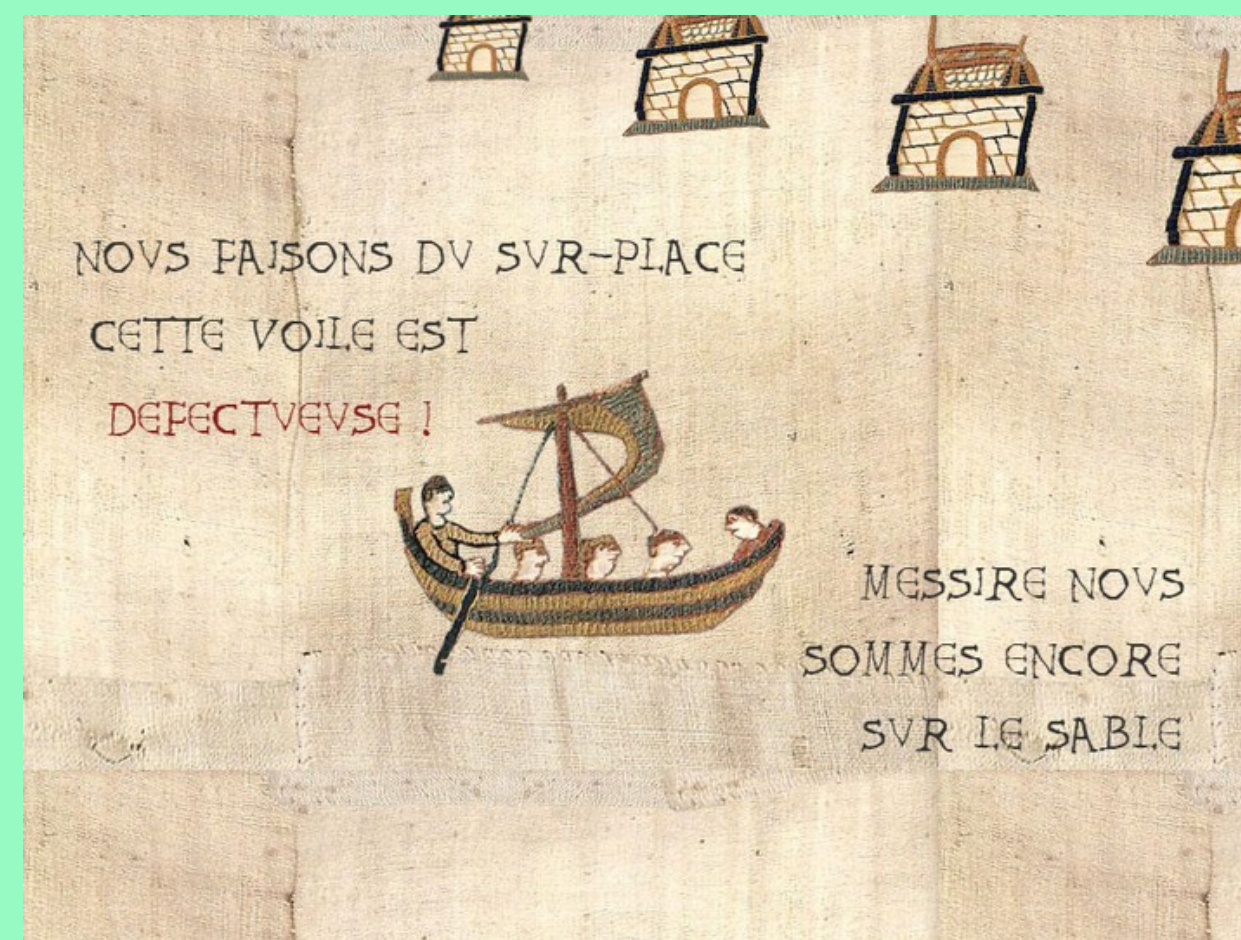 NOVS FAISONS DV SVR-PLACE
CETTE VOILE EST
DEFECTVEVSE !
MESSIRE NOVS
SOMMES ENCORE
SVR LE SABLE